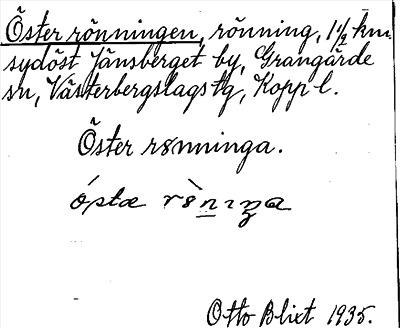 Öster rönningen, rönning, 1 1/2 km.
sydöst Jänsberget by, Grangärde
sn, Västerbergslags tg, Kopp l.
Öster rønninga.
Otto Blixt 1935.